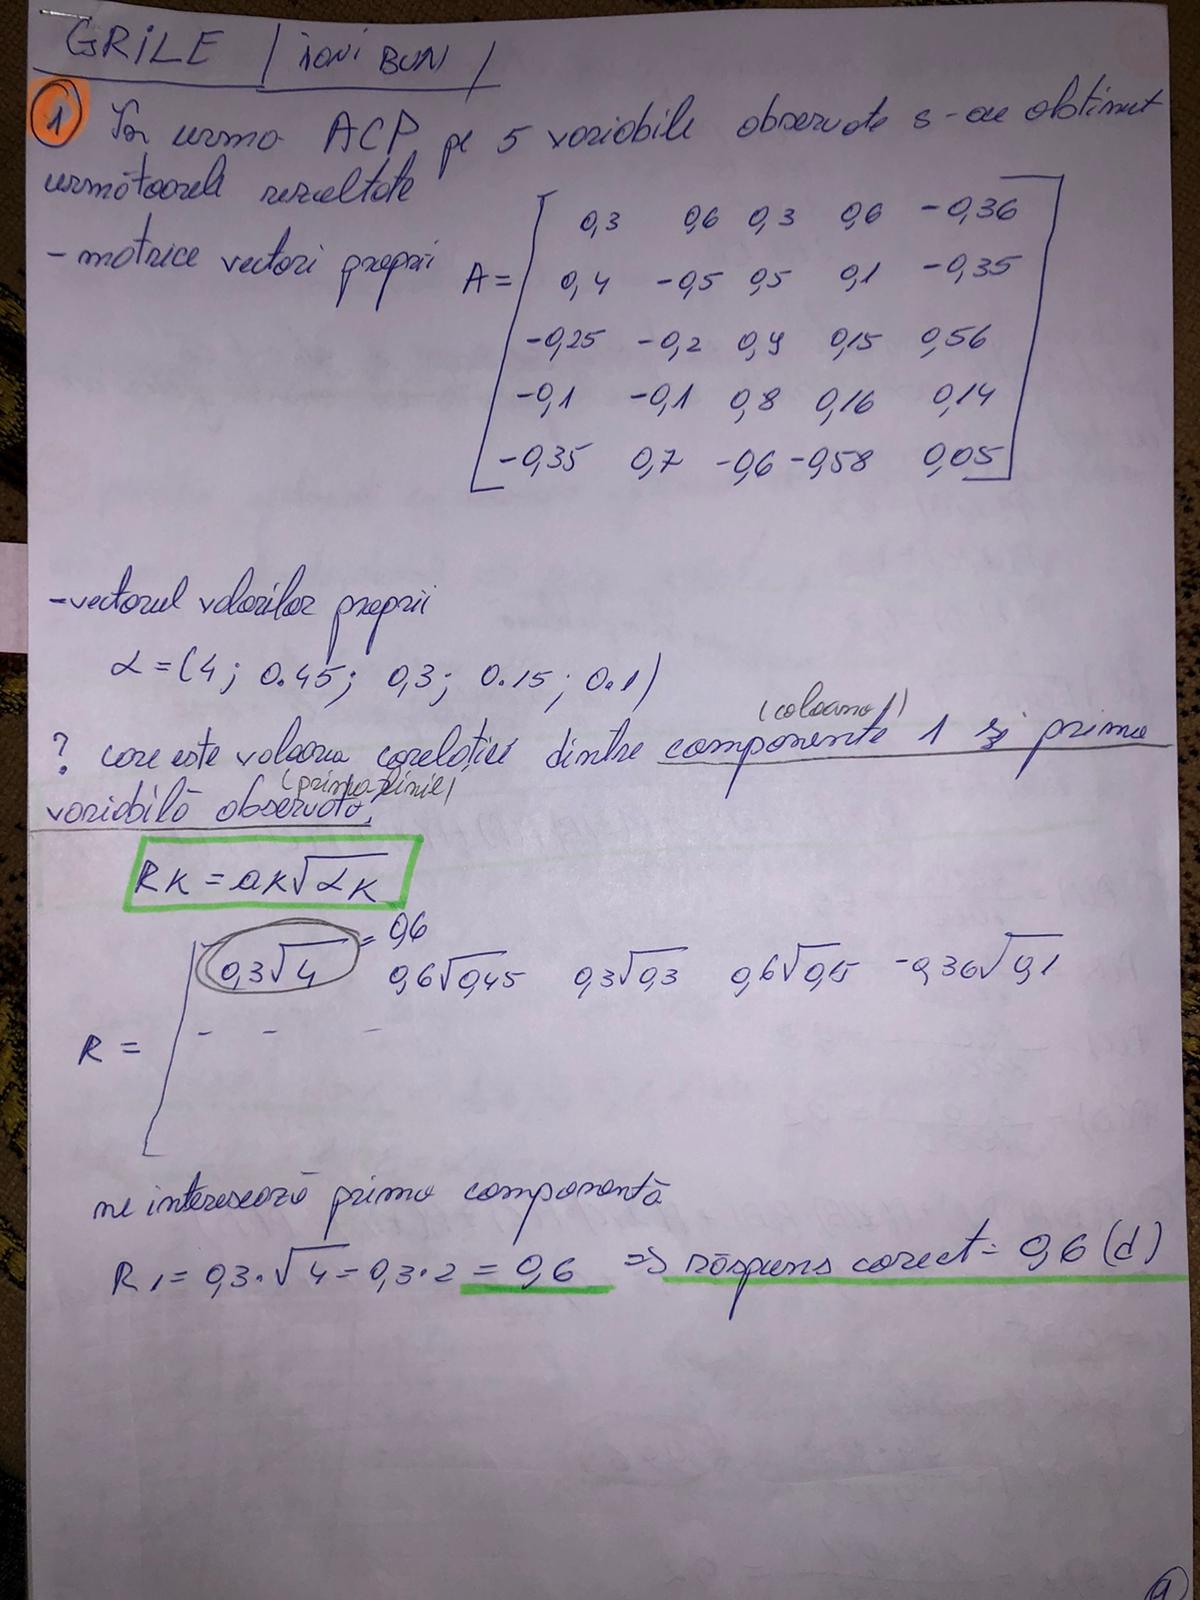 GRILE / IONI BUN /
1 În urma ACP, pe 5 variabile observate s-au obtinut
următoarele rezultate
- matrice vectori proprii
A =
0,3 0,6 0,3 0,6 -0,36
0,4 -0,5 0,5 0,1 -0,35
-0,25 -0,2 0,4 0,15 0,56
-0,1 -0,1 0,8 0,16 0,14
-0,35 0,7 -0,6 -0,58 0,05
- vectorul valorilor proprii
α = (4; 0.45; 0,3; 0.15; 0.1)
(coloana 1)
? care este valoarea corelației dintre componente 1 și prima
(prima linie)
variabilă observată.
RK = aK√αK
= 0,6
0,3√4 0,6√0,45 0,3√0,3 0,6√0,15 -0,36√0,1
- - -
R =
ne interesează prima componentă
R1 = 0,3·√4 = 0,3·2 = 0,6 => răspuns corect = 0,6 (d)